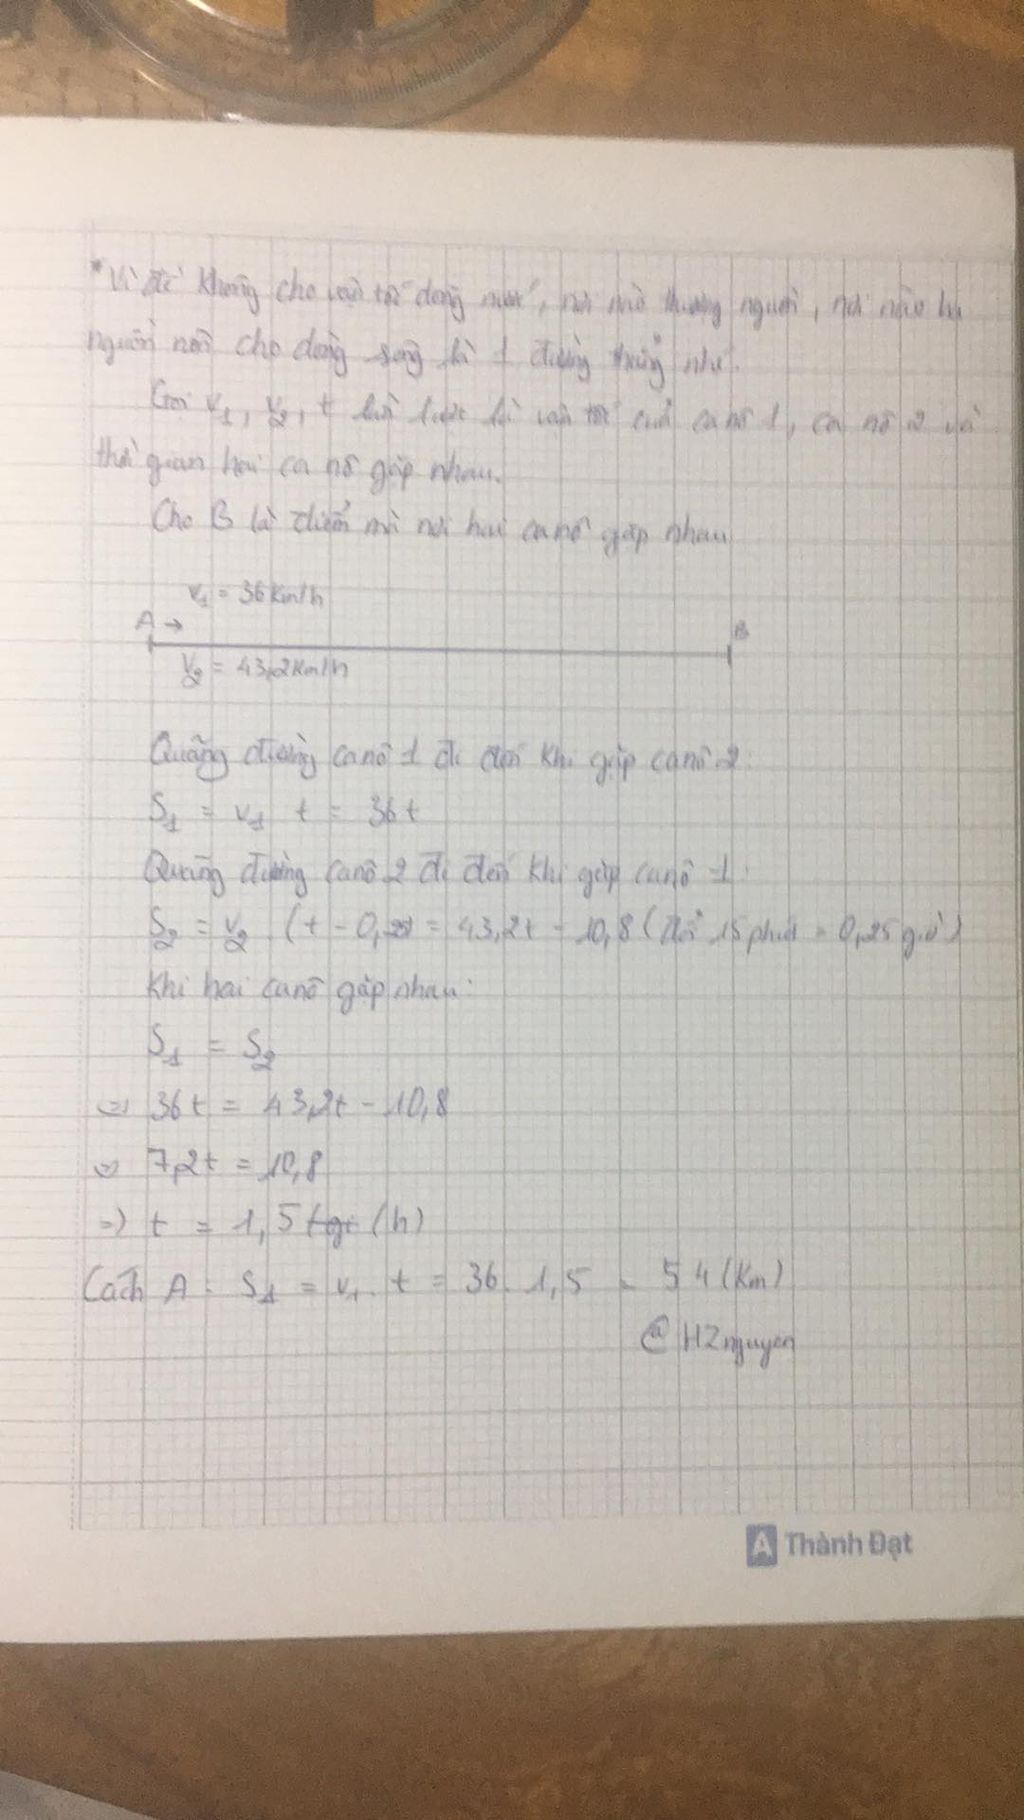 *Vì đề không cho vận tốc dòng nước, nơi nào thượng nguồn, nơi nào hạ
nguồn nên cho dòng sông là 1 đường thẳng nhé.
Gọi v₁, v₂, t lần lượt là vận tốc của canô 1, ca nô 2 và
thời gian hai ca nô gặp nhau.
Cho B là điểm mà nơi hai canô gặp nhau
v₁ = 36 Km/h
A → B
v₂ = 43,2 Km/h
Quãng đường canô 1 đi đến khi gặp canô 2:
S₁ = v₁ t = 36t
Quãng đường canô 2 đi đến khi gặp canô 1:
S₂ = v₂ . (t - 0,25) = 43,2t - 10,8 (đổi 15 phút = 0,25 giờ)
Khi hai canô gặp nhau:
S₁ = S₂
=> 36t = 43,2t - 10,8
=> 7,2t = 10,8
=> t = 1,5 (h)
Cách A : S₁ = v₁ . t = 36 . 1,5 = 54 (Km)
@HZnguyen
A Thành Đạt